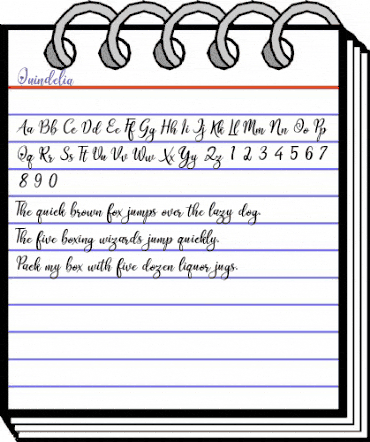 Quindelia
Aa Bb Cc Dd Ee Ff Gg Hh Ii Jj Kk Ll Mm Nn Oo Pp
Qq Rr Ss Tt Uu Vv Ww Xx Yy Zz 1 2 3 4 5 6 7
8 9 0
The quick brown fox jumps over the lazy dog.
The five boxing wizards jump quickly.
Pack my box with five dozen liquor jugs.